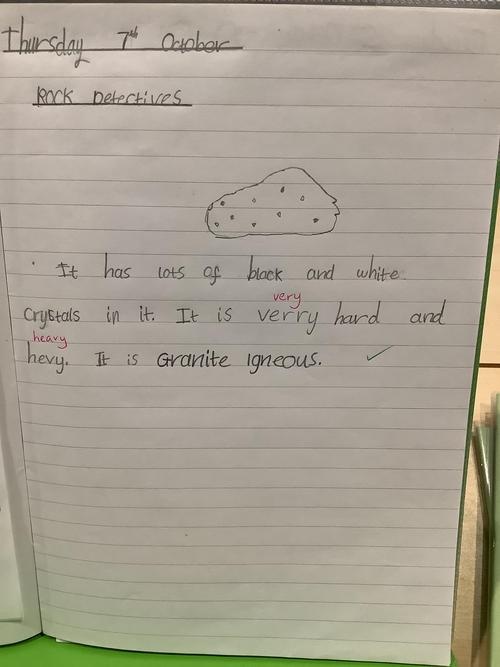 Thursday 7th October
Rock Detectives
It has lots of black and white
very
crystals in it. It is verry hard and
heavy
hevy. It is Granite Igneous.